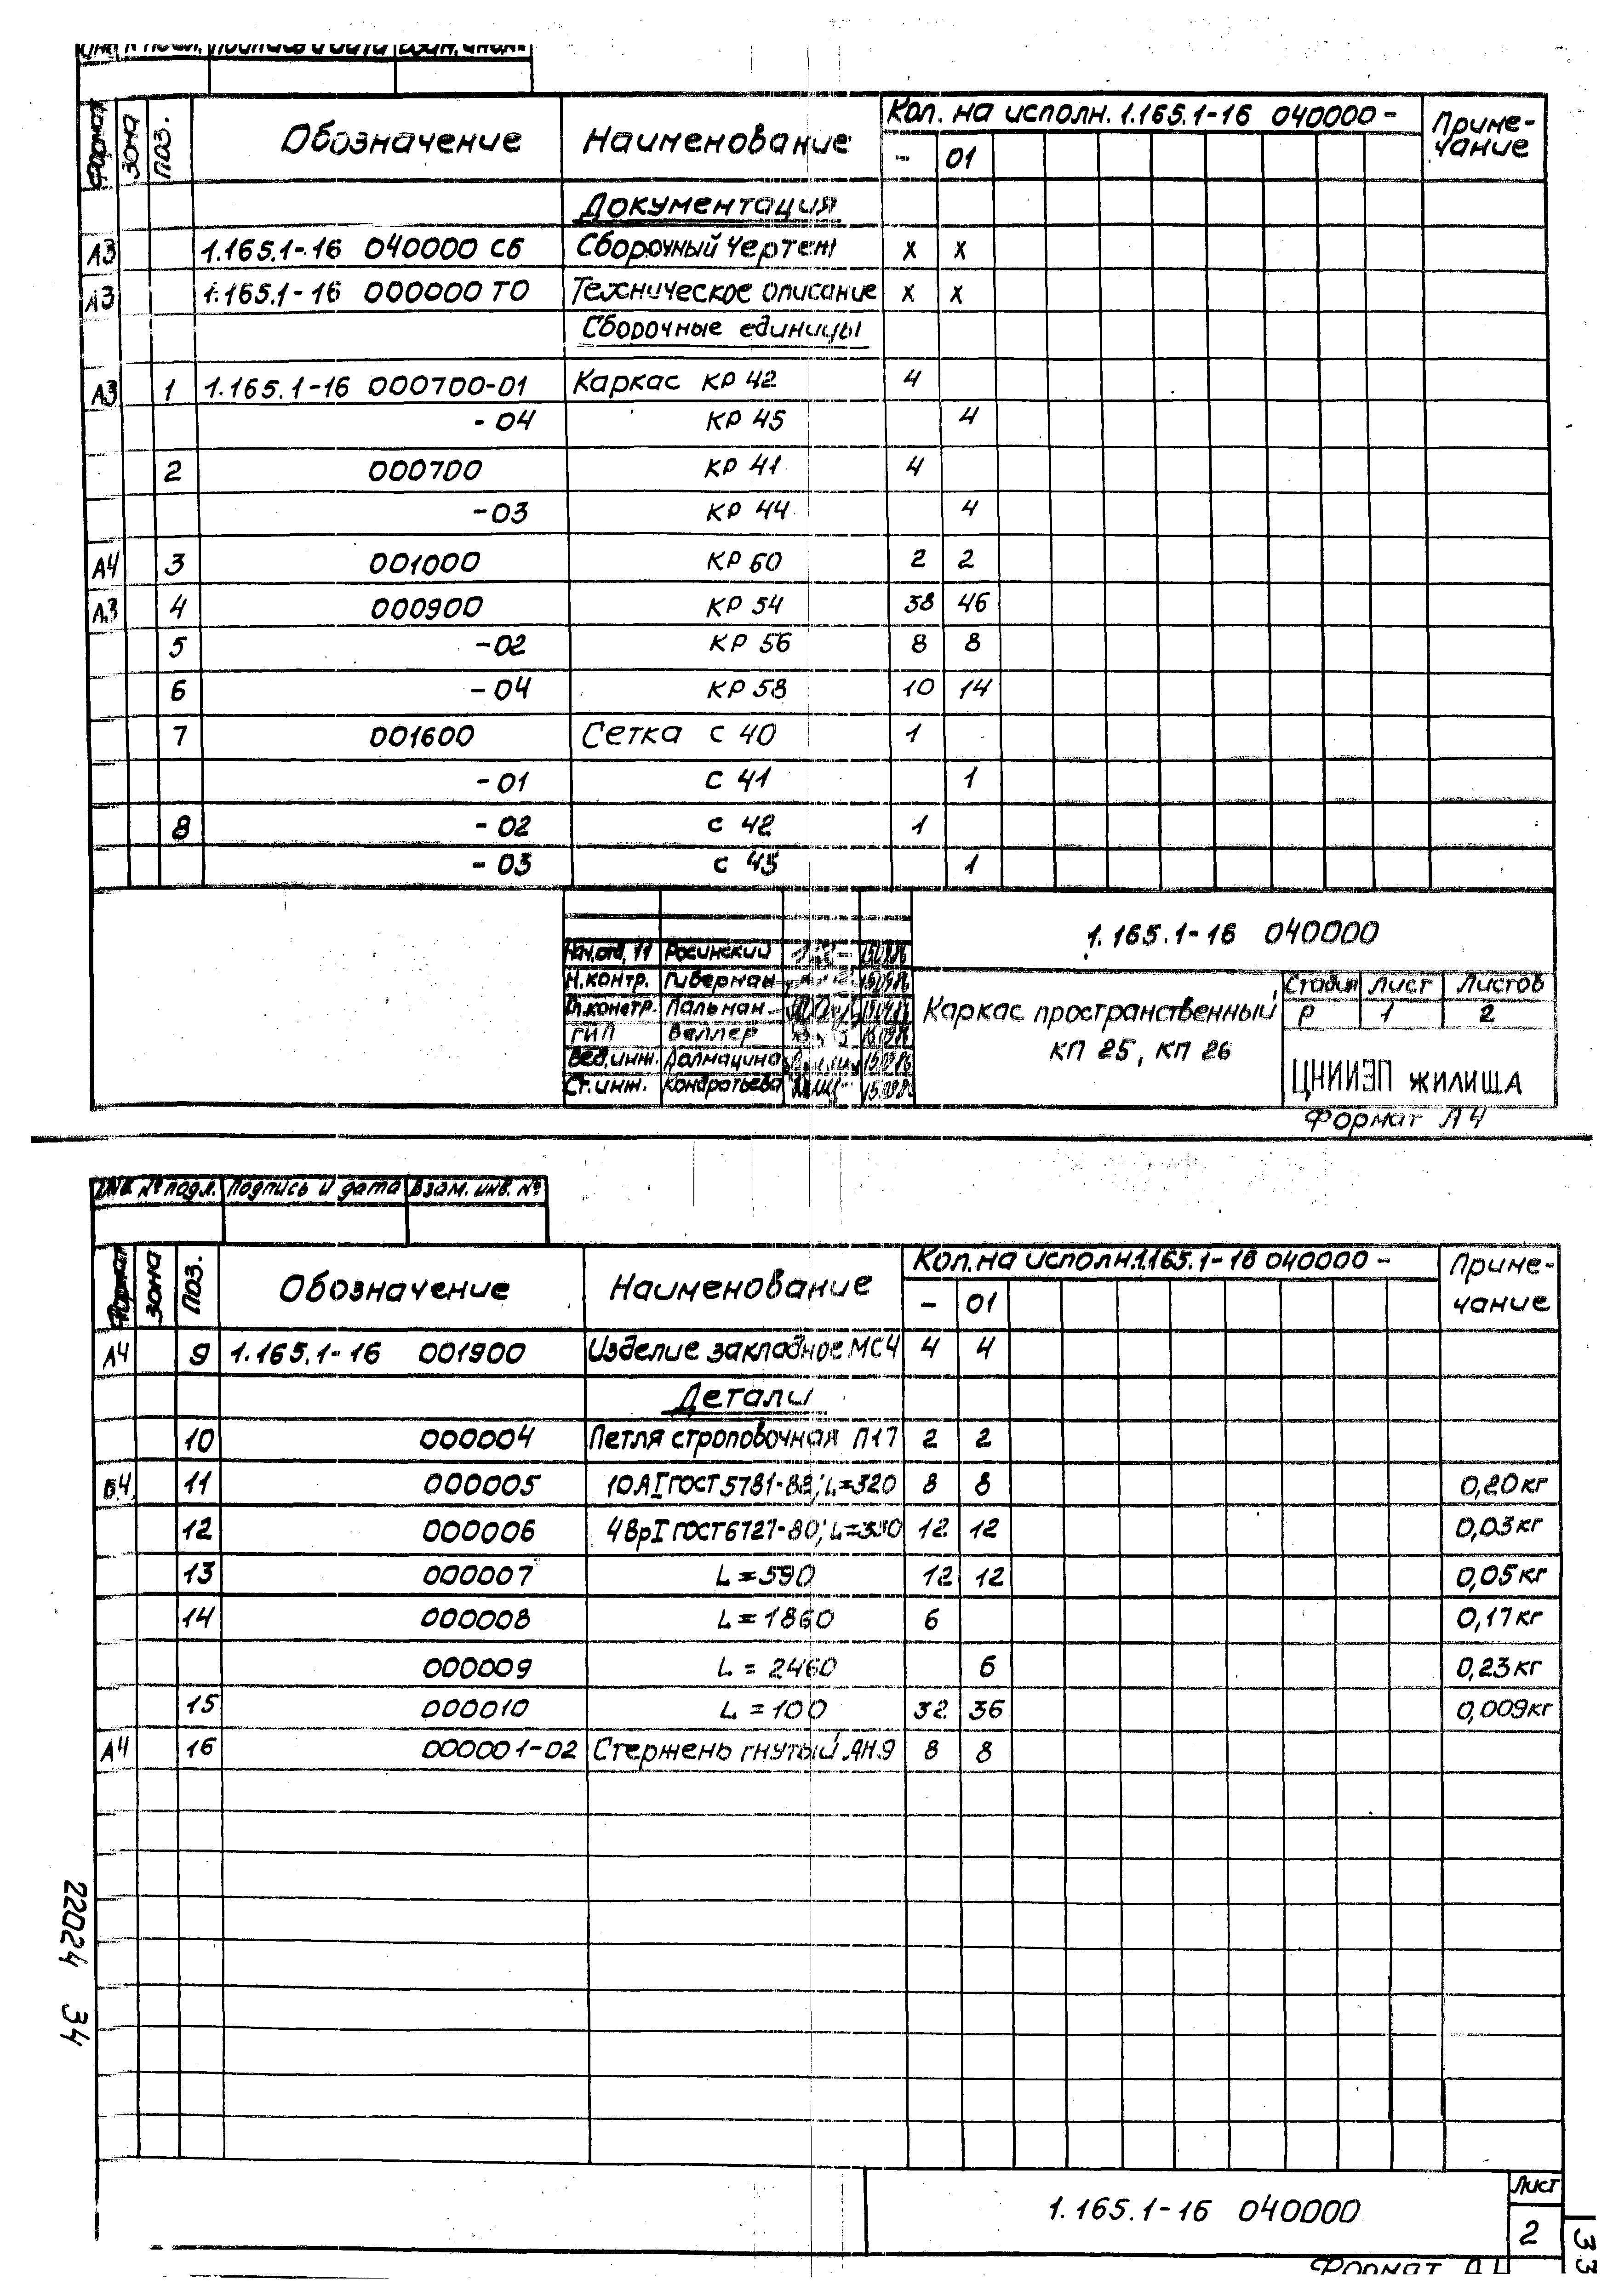 Инв. № подл. Подпись и дата Взам. инв. №
Формат Зона Поз. Обозначение Наименование Кол. на исполн. 1.165.1-16 040000 - Приме-
чание
- 01
Документация
А3 1.165.1-16 040000 СБ Сборочный чертеж х х
А3 1.165.1-16 000000 ТО Техническое описание х х
Сборочные единицы
А3 1 1.165.1-16 000700-01 Каркас КР 42 4
-04 КР 45 4
2 000700 КР 41 4
-03 КР 44 4
А4 3 001000 КР 60 2 2
А3 4 000900 КР 54 38 46
5 -02 КР 56 8 8
6 -04 КР 58 10 14
7 001600 Сетка С 40 1
-01 С 41 1
8 -02 С 42 1
-03 С 43 1
1.165.1-16 040000
Нач.отд. 11 Росинский
Н.контр. Гиберман
Гл.констр. Пальман
ГИП Веллер
Вед.инж. Долмацина
Ст.инж. Кондратьева
Каркас пространственный
КП 25, КП 26
Стадия Лист Листов
Р 1 2
ЦНИИЭП жилища
Формат А4
Инв. № подл. Подпись и дата Взам. инв. №
Формат Зона Поз. Обозначение Наименование Кол. на исполн. 1.165.1-16 040000 - Приме-
чание
- 01
А4 9 1.165.1-16 001900 Изделие закладное МС4 4 4
Детали
10 000004 Петля строповочная П17 2 2
Б4 11 000005 10АI ГОСТ 5781-82; L=320 8 8 0,20 кг
12 000006 4ВрI ГОСТ 6727-80; L=330 12 12 0,03 кг
13 000007 L=590 12 12 0,05 кг
14 000008 L=1860 6 0,17 кг
000009 L=2460 6 0,23 кг
15 000010 L=100 32 36 0,009 кг
А4 16 000001-02 Стержень гнутый АН9 8 8
22024 34
1.165.1-16 040000
Лист
2
33
Формат А4